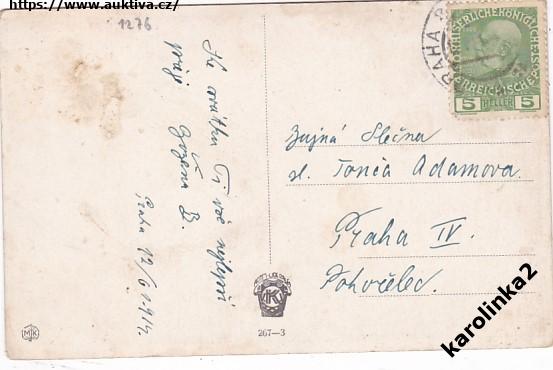 https://www.auktiva.cz/
1276
K svátku Ti vše nejlepší
přeje
Božena B.
Praha 12/6 1914.
PRAHA
KAISERLICHE KÖNIGLICHE
ÖSTERREICHISCHE POST
5 HELLER 5
Slečna
sl. Tonča Adamova
Praha IV.
Pohořelec.
K
MK
267—3
karolinka2